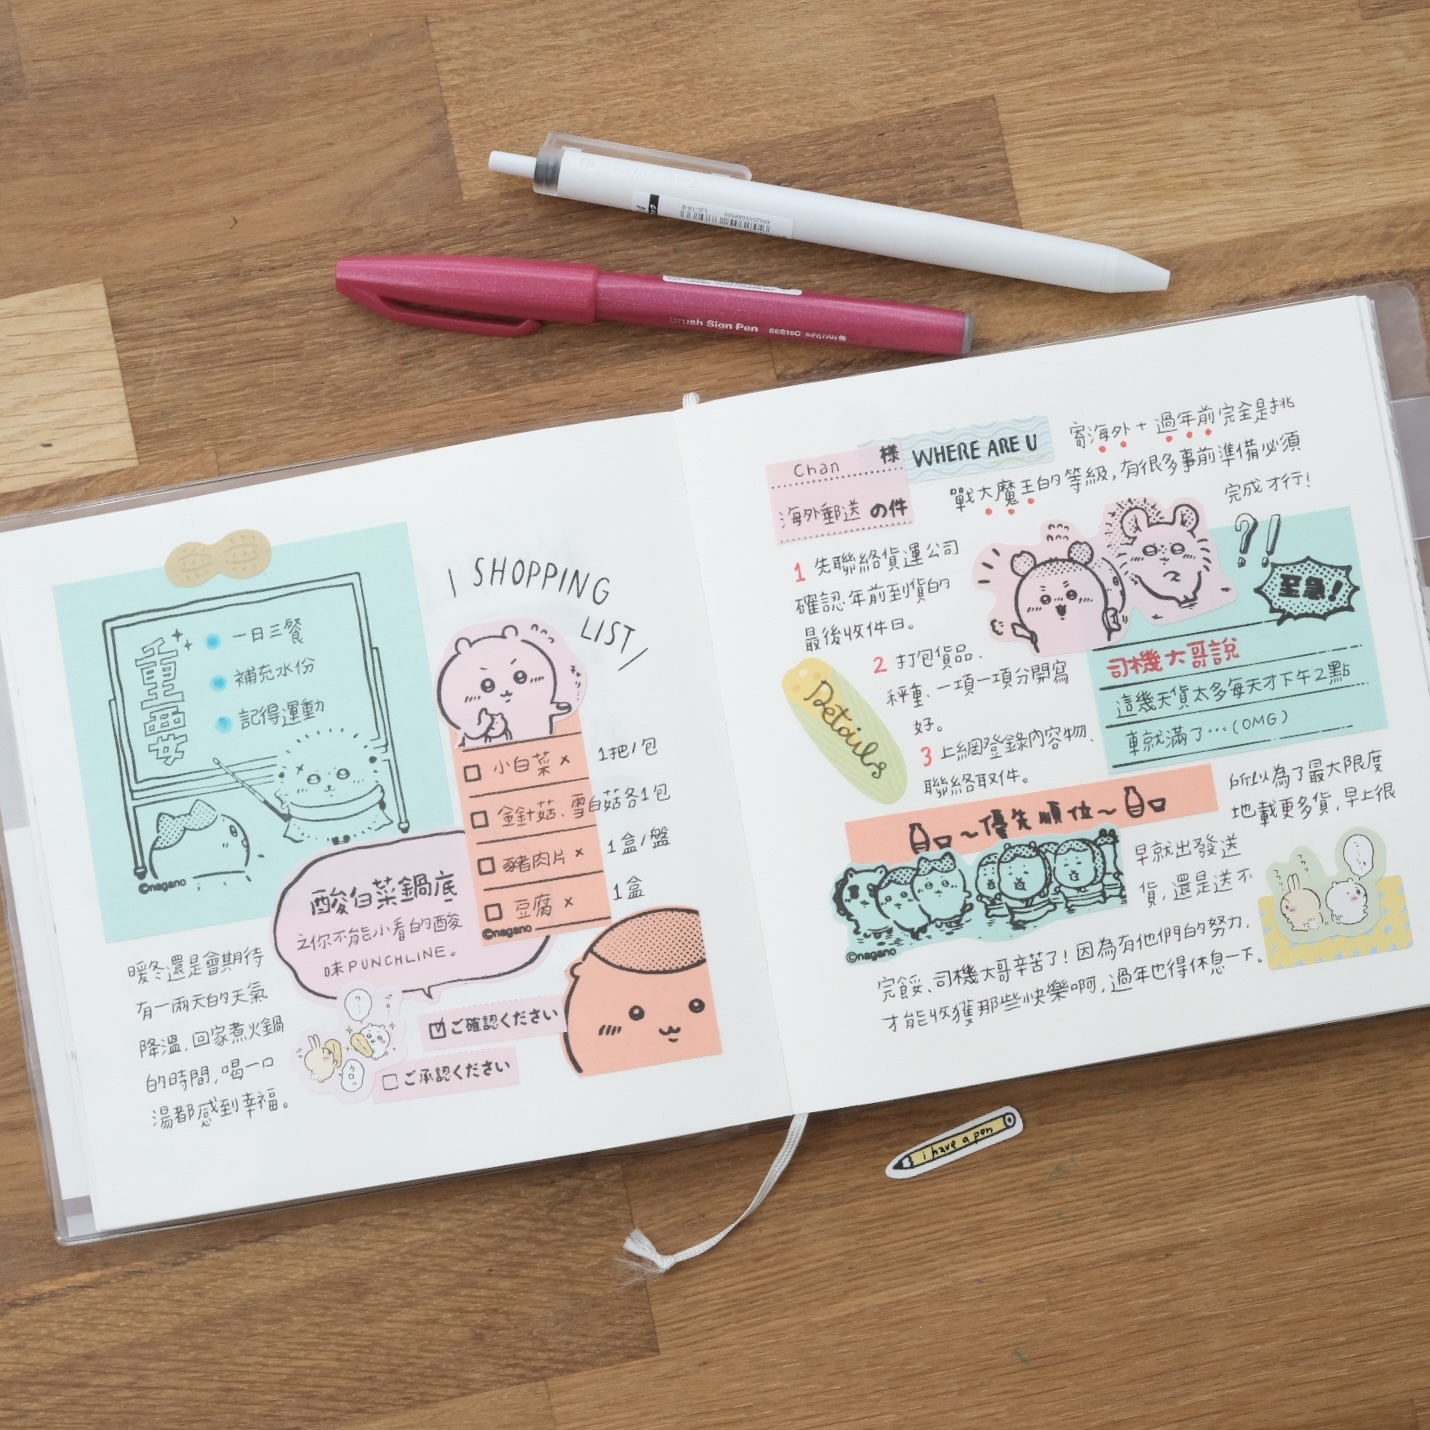 Brush Sign Pen SES15C
重要
一日三餐
補充水份
記得運動
©nagano
I SHOPPING
LIST/
小白菜 × 1把/包
金針菇、雪白菇各1包
豬肉片 × 1盒/盤
豆腐 × 1盒
©nagano
酸白菜鍋底
之你不能小看的酸
味PUNCHLINE。
暖冬還是會期待
有一兩天的天氣
降溫,回家煮火鍋
的時間,喝一口
湯都感到幸福。
ご確認ください
ご承認ください
Chan 様
海外郵送の件
WHERE ARE U
寄海外+過年前完全是挑
戰大魔王的等級,有很多事前準備必須
完成才行!
1 先聯絡貨運公司
確認年前到貨的
最後收件日。
2 打包貨品、
秤重、一項一項分開寫
好。
3 上網登錄內容物、
聯絡取件。
Details
?!
至急!
司機大哥說
這幾天貨太多每天才下午2點
車就滿了…(OMG)
~優先順位~
©nagano
所以為了最大限度
地載更多貨,早上很
早就出發送
貨,還是送不
完餒、司機大哥辛苦了!因為有他們的努力,
才能收獲那些快樂啊,過年也得休息一下。
i have a pen